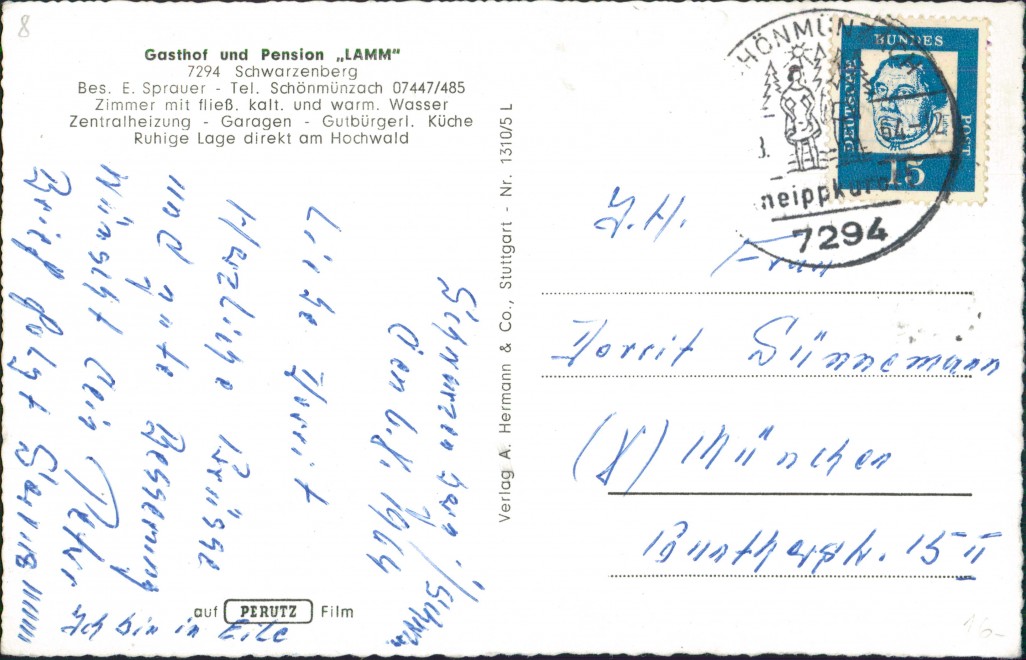 8
Gasthof und Pension „LAMM"
7294 Schwarzenberg
Bes. E. Sprauer - Tel. Schönmünzach 07447/485
Zimmer mit fließ. kalt. und warm. Wasser
Zentralheizung - Garagen - Gutbürgerl. Küche
Ruhige Lage direkt am Hochwald
Schwarzenberg/Schönm.
den 6.8. 1964
Liebe Dorrit
Herzliche Grüsse
und gute Besserung
Wünscht dein Peter
Brief folgt
Ich bin in Eile
auf PERUTZ Film
Verlag A. Hermann & Co., Stuttgart - Nr. 1310/5 L
HÖNMÜNZACH
64-12
neippkur
7294
DEUTSCHE
BUNDES
POST
15
I.H.
Frau
Dorrit Sünnemann
München
15 II
16-